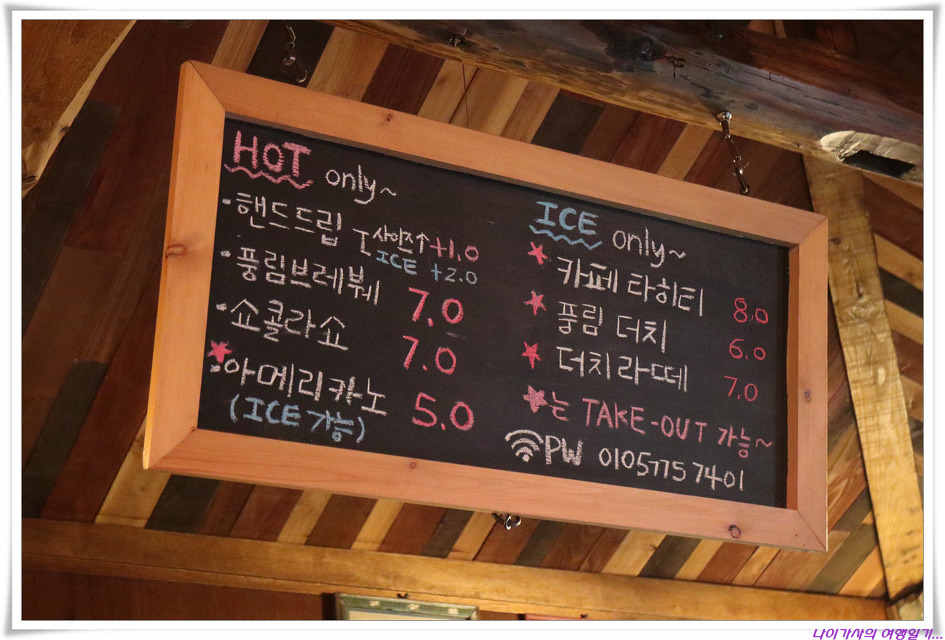 HOT only~
·핸드드립
L사이즈↑+1.0
ICE +2.0
·풍림브레붸 7.0
·쇼콜라쇼 7.0
★·아메리카노 5.0
(ICE 가능)
ICE only~
★카페 타히티 8.0
★풍림 더치 6.0
★더치라떼 7.0
★는 TAKE-OUT 가능~
PW 01057757401
나이가사의 여행일기...